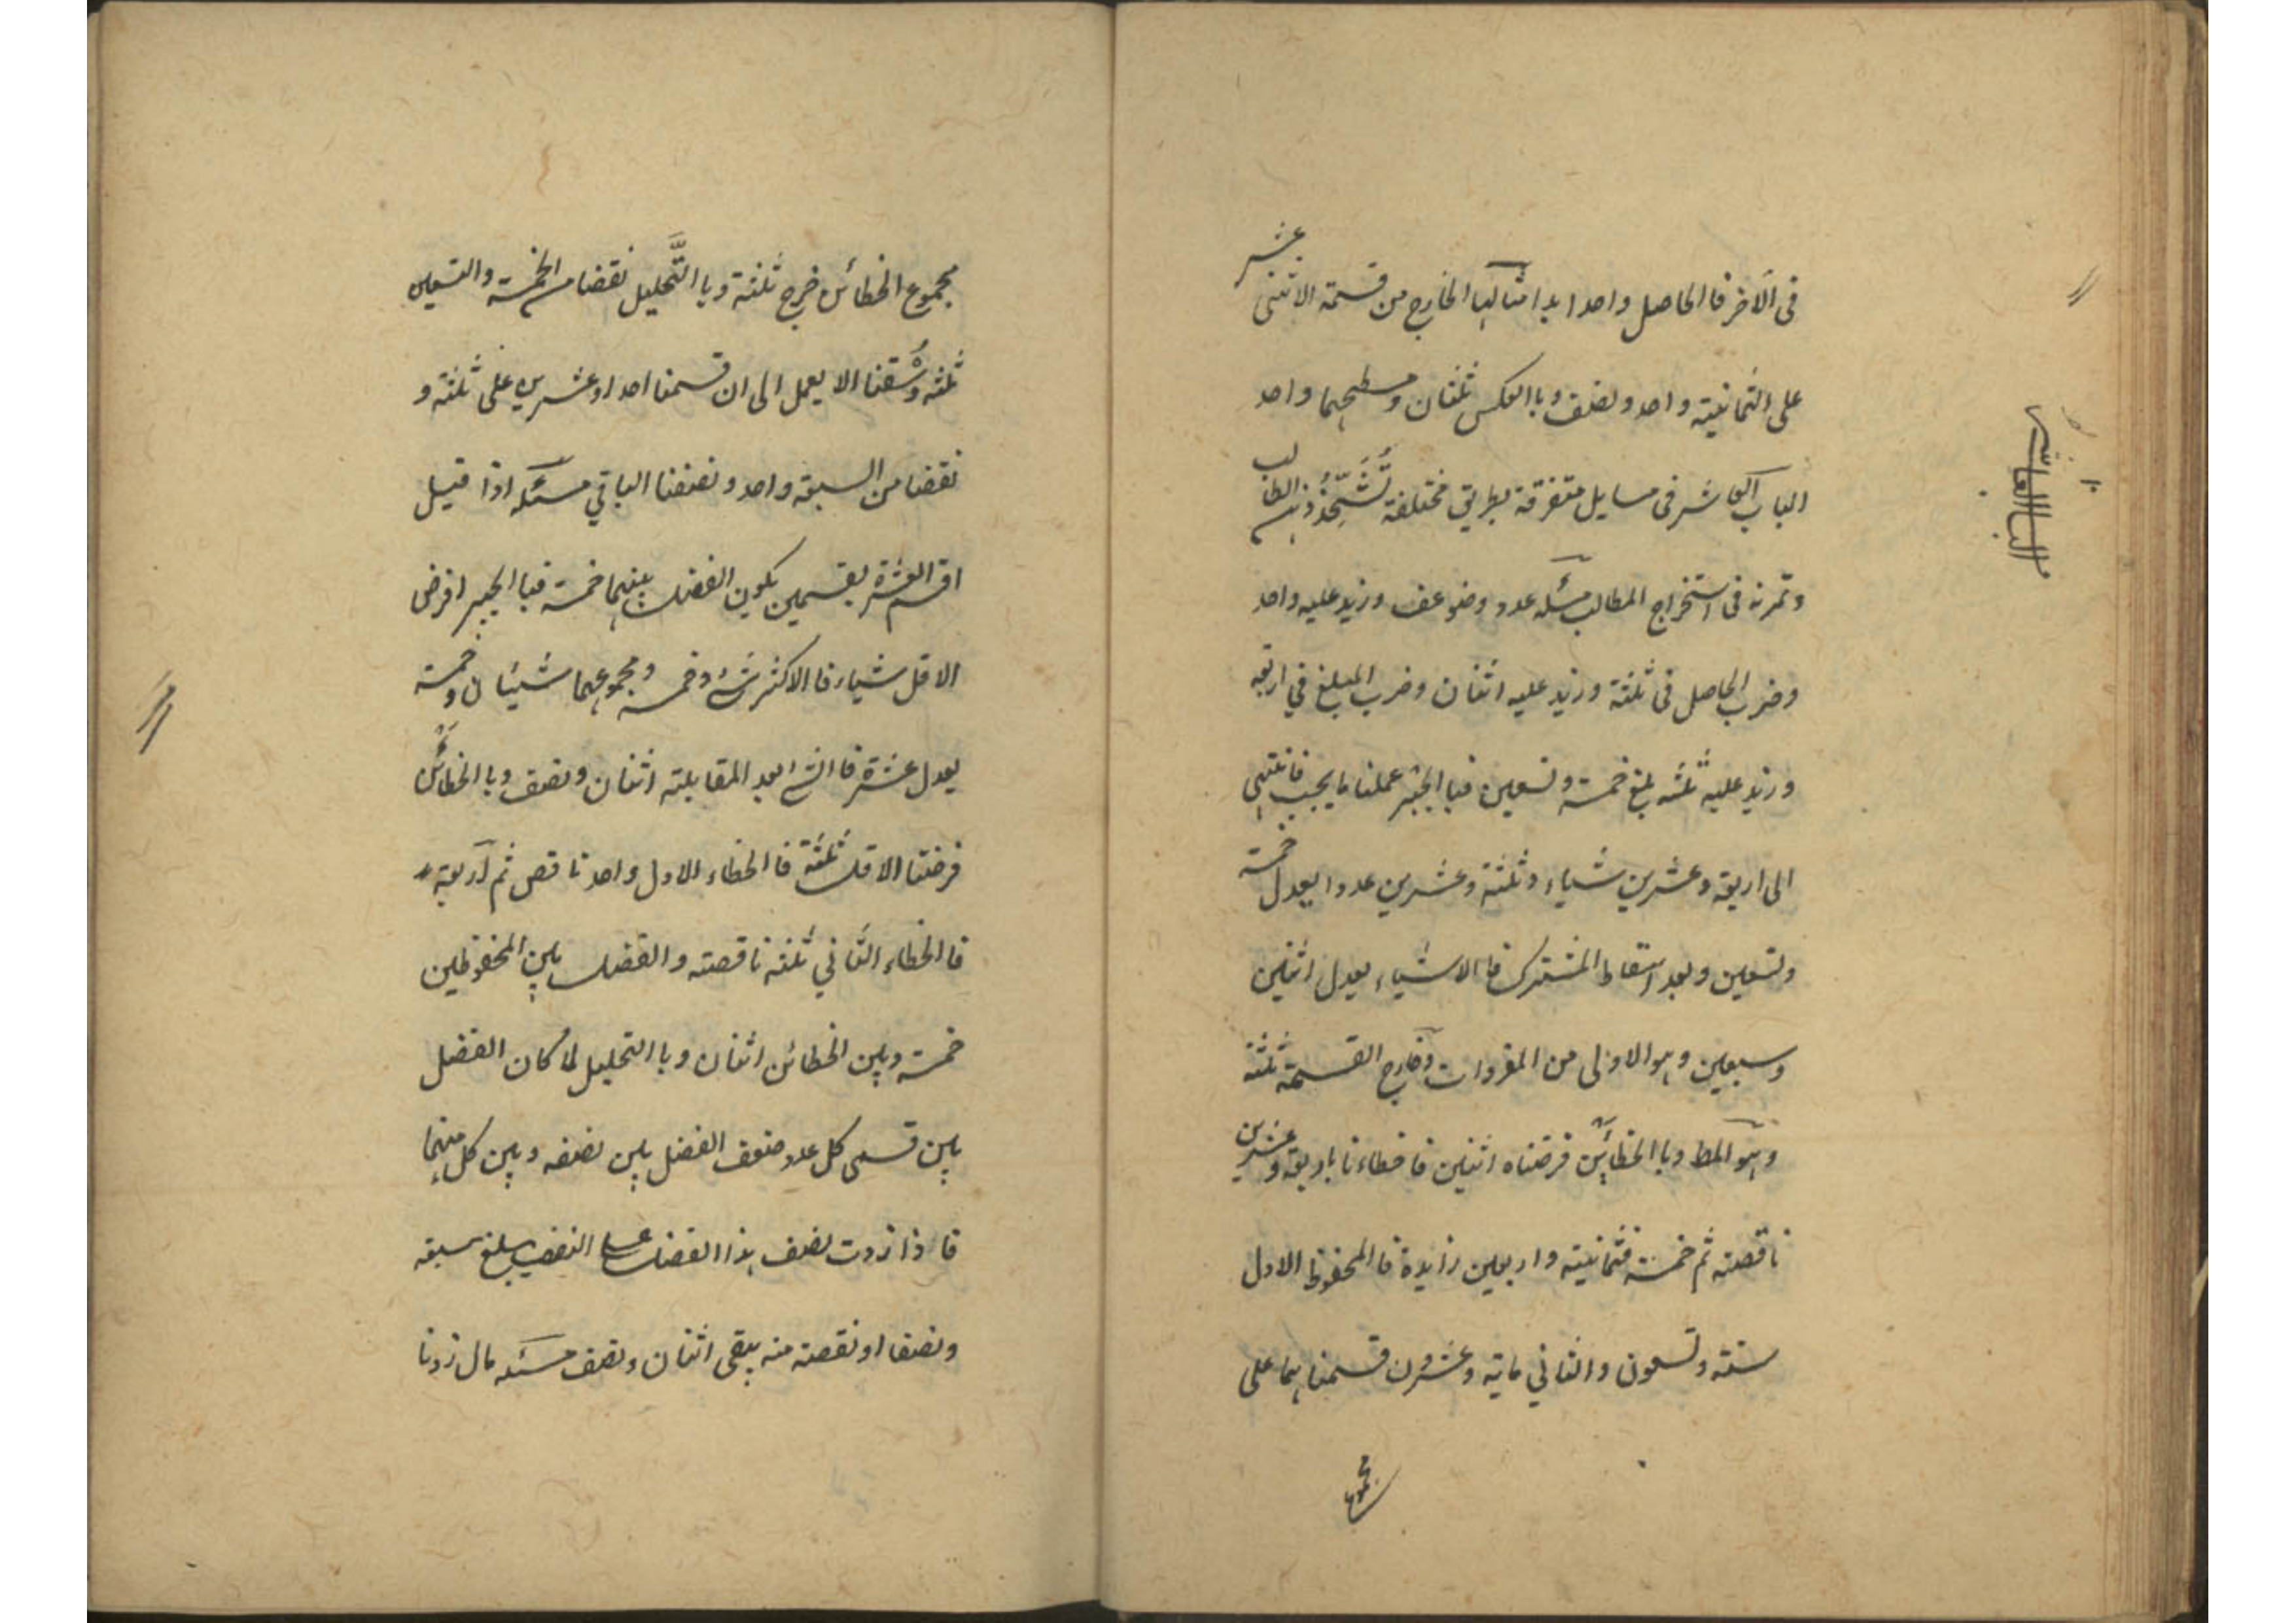 عشر
فى الآخر فا الحاصل واحد ابدا مثالها الخارج من قسمة الاثنى
على الثمانية واحد ونصف وبا العكس ثلثان ومسطحهما واحد
الباب العاشر فى مسايل متفرقة بطريق مختلفة تُشَحِّذُ ذهن الطالب
وتمرنه فى استخراج المطالب مسئله عدد وضوعف وزيد عليه واحد
وضرب الحاصل فى ثلثة وزيد عليه اثنان وضرب المبلغ في اربعة
وزيد عليه ثلثه بلغ خمسة وتسعين فبا الجبر عملنا ما يجب فانتهى
الى اربعة وعشرين شياء وثلثة وعشرين عددا يعدل خمسة
وتسعين وبعد اسقاط المشترك فا الاشياء يعدل اثنين
وسبعين وهو الاولى من المفردات وخارج القسمة ثلثة
وهو المط وبا الخطائين فرضناه اثنين فاخطاءنا باربعة وعشرين
ناقصته ثم خمسة فثمانية واربعين زايدة فا المحفوظ الاول
ستته وتسعون والثاني ماية وعشرون قسمناهما على
مجموع
الباب العاشر
مجموع الخطائين خرج ثلثة وبا التَّحليل نقصنا من الخمسة والتسعين
ثلثه وسُقنا الا يعمل الى ان قسمنا احدا وعشرين على ثلثة و
نقصنا من السبعة واحد ونصفنا الباقي مسئله اذا قيل
اقسم العشرة بقسمين يكون الفضل بينهما خمسة فبا الجبر افرض
الاقل شياء فا الاكثر شئ وخمسه ومجموعهما شيئان وخمسة
يعدل عشرة فا الشئ بعد المقابلته اثنان ونصف وبا الخطائين
فرضنا الاقل ثلثة فا الخطاء الاول واحد ناقص ثم اربعة
فا الخطاء الثاني ثلثه ناقصته والفضل بين المحفوظين
خمسة وبين الخطائن اثنان وبا التحليل لما كان الفضل
بين قسمى كل عدد ضعف الفضل بين نصفه وبين كل منهما
فاذا زدت نصف هذا الفضل على النصف يبلغ سبعه
ونصفا او نقصته منه يبقى اثنان ونصف مسئله مال زدنا